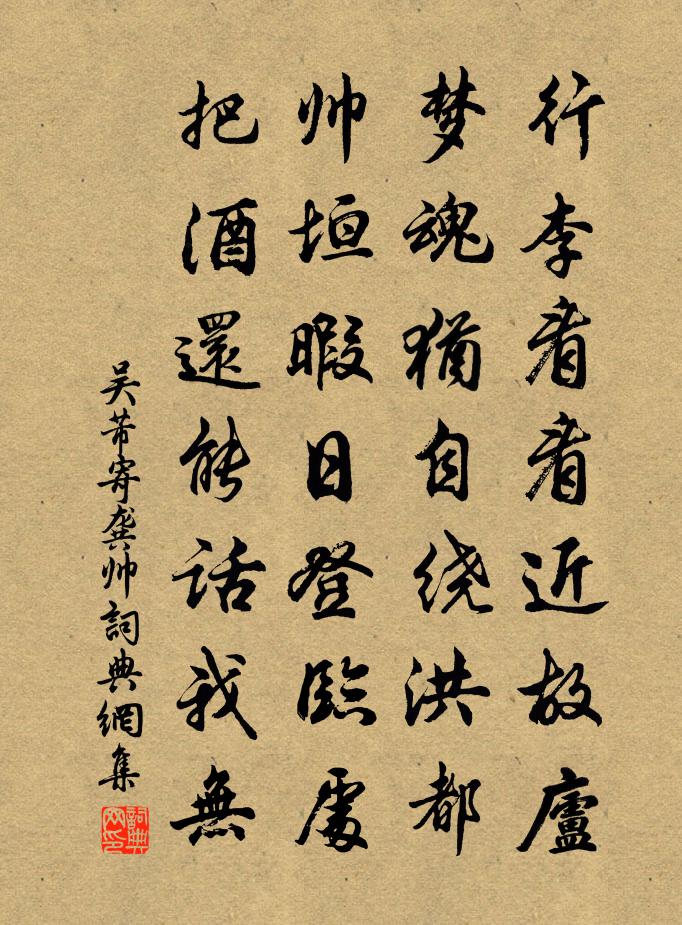 行李看看近故廬
梦魂猶自绕洪都
帅垣暇日登臨處
把酒還能話我無
吴芾寄龚帅詞典網集
詞典网印